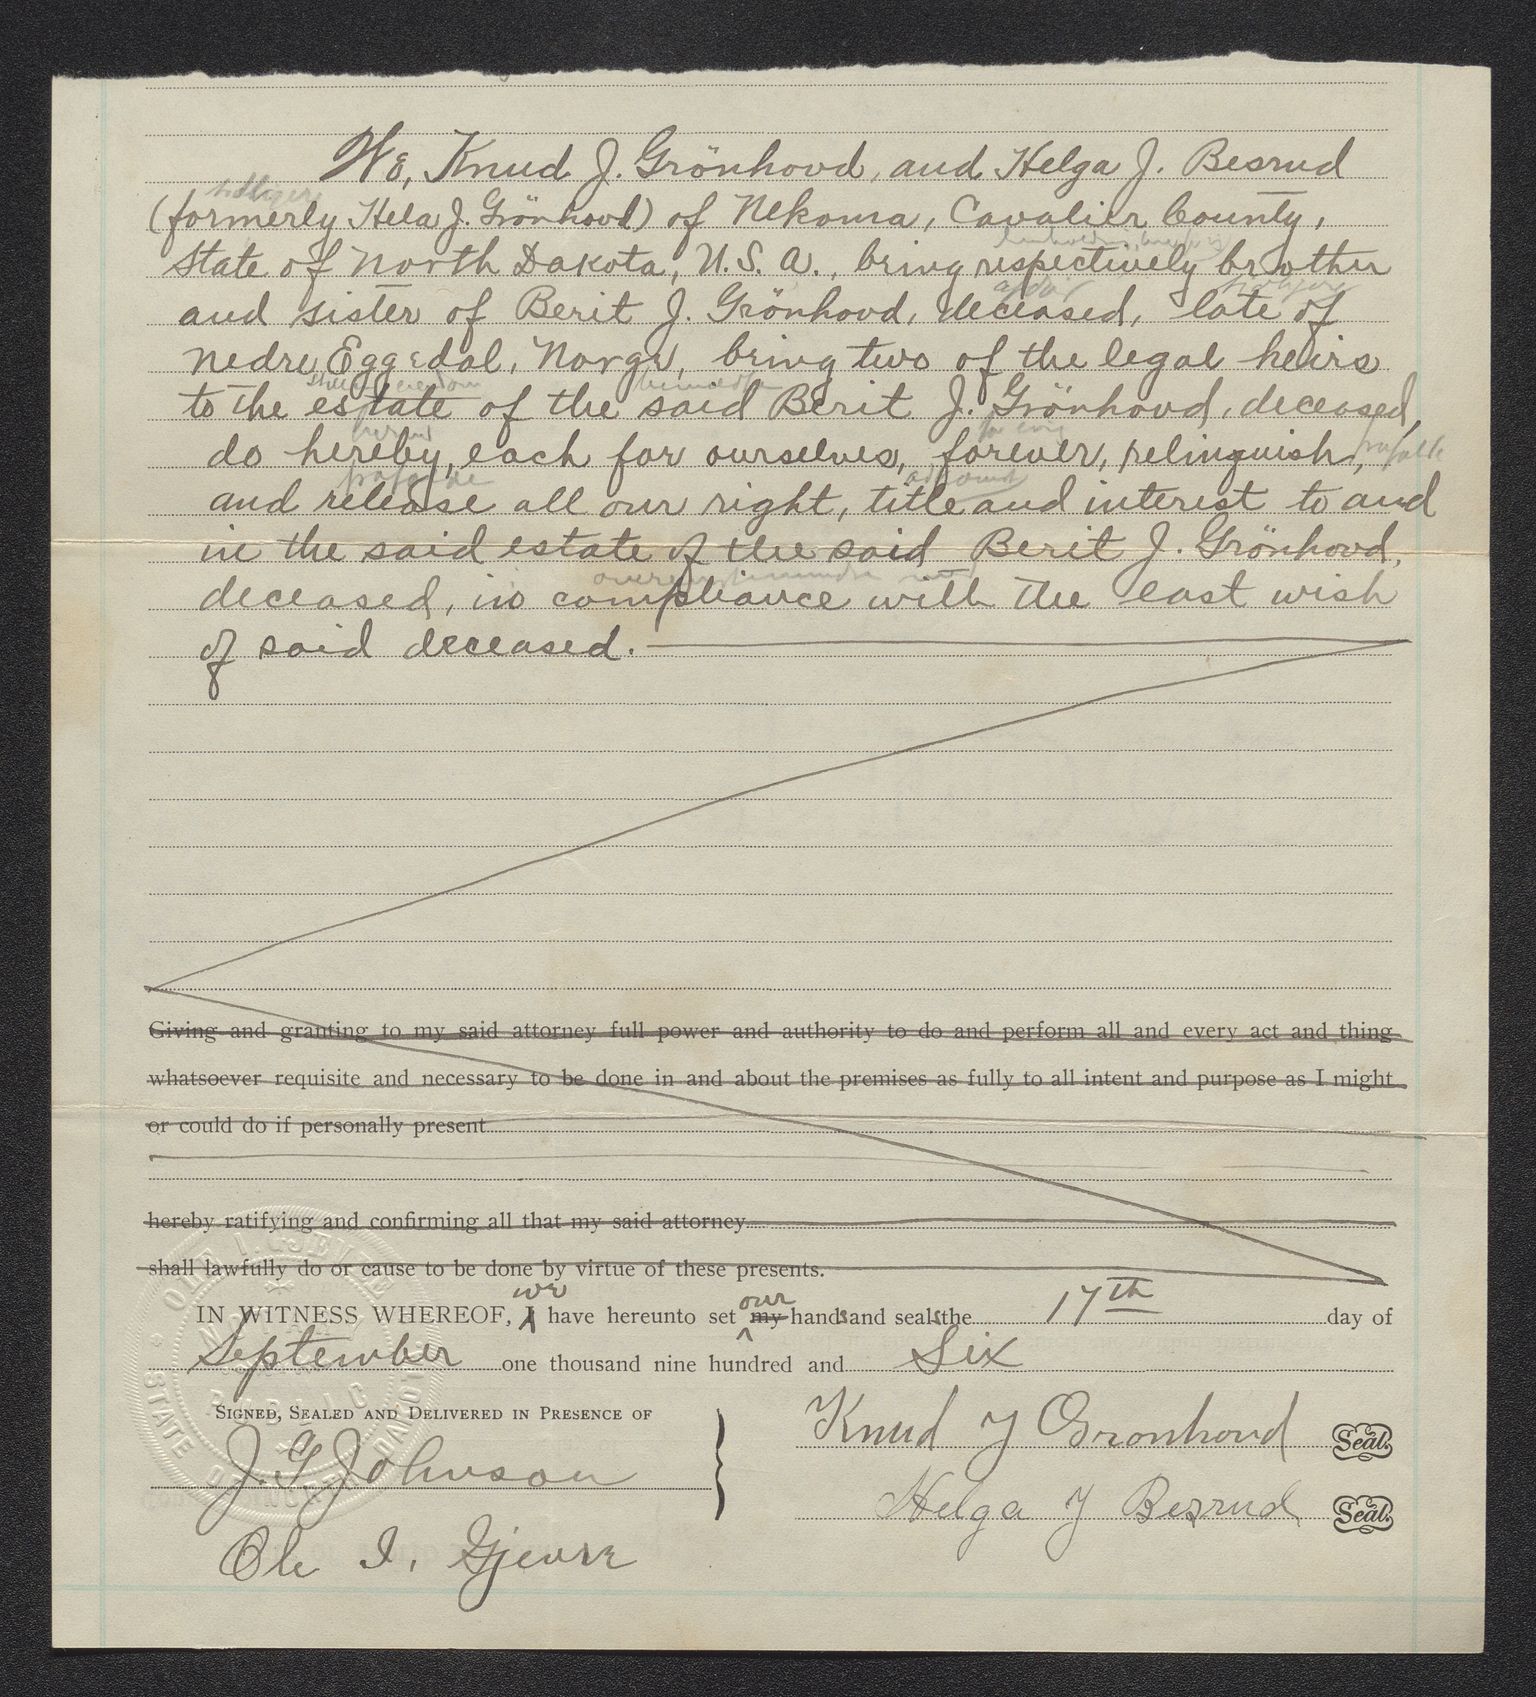 We, Knud J. Grönhovd, and Helga J. Besrud
(formerly Hela J. Grönhovd) of Nekoma, Cavalier County,
State of North Dakota, U. S. A., being respectively brother
and sister of Berit J. Grönhovd, deceased, late of
Nedre Eggedal, Norge, being two of the legal heirs
to the estate of the said Berit J. Grönhovd, deceased,
do hereby, each for ourselves, forever, relinquish,
and release all our right, title and interest to and
in the said estate of the said Berit J. Grönhovd,
deceased, in compliance with the last wish
of said deceased.
Giving and granting to my said attorney full power and authority to do and perform all and every act and thing
whatsoever requisite and necessary to be done in and about the premises as fully to all intent and purpose as I might
or could do if personally present
hereby ratifying and confirming all that my said attorney
shall lawfully do or cause to be done by virtue of these presents.
we our
IN WITNESS WHEREOF, I have hereunto set my hands and seals the 17th day of
September one thousand nine hundred and Six
SIGNED, SEALED AND DELIVERED IN PRESENCE OF
Knud J Gronhovd Seal.
J. G Johnson
Helga J Besrud Seal.
Ole I. Gjevre
OLE I. GJEVRE
NOTARY
PUBLIC
STATE OF NORTH DAKOTA